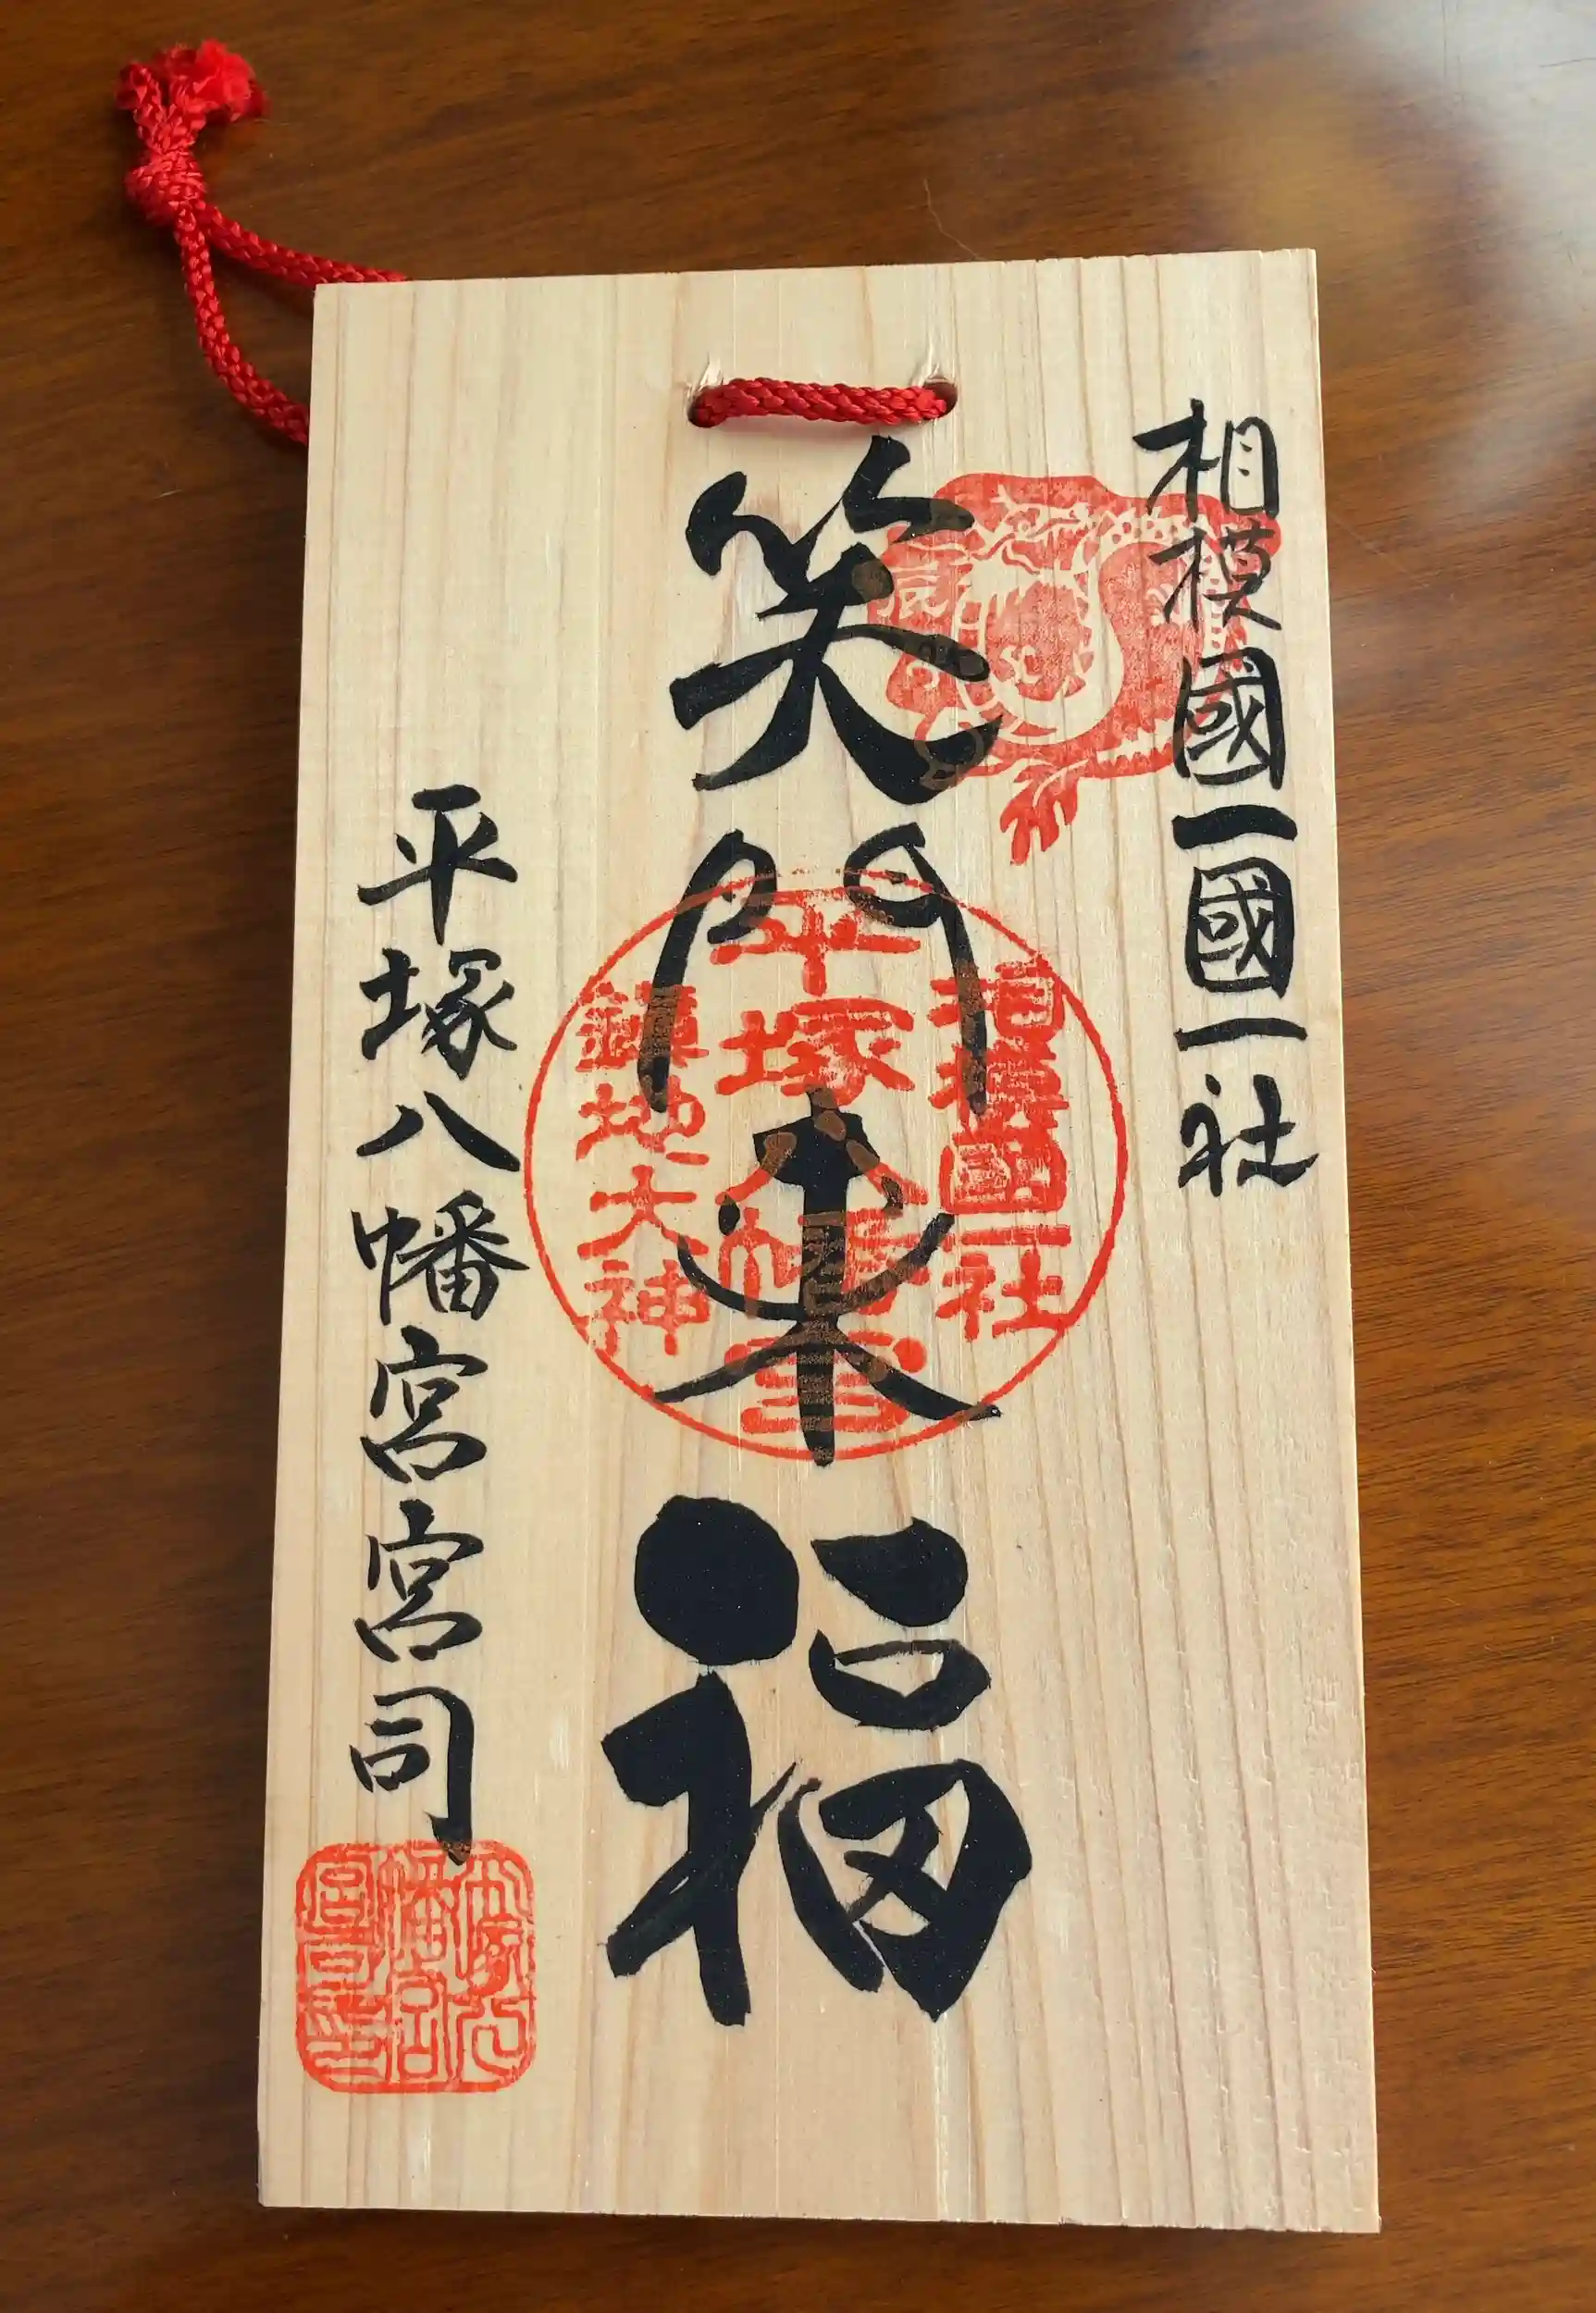 相模國一國一社
笑門来福
平塚八幡宮宮司
相模國一社
平塚八幡宮
鎮地大神
辰